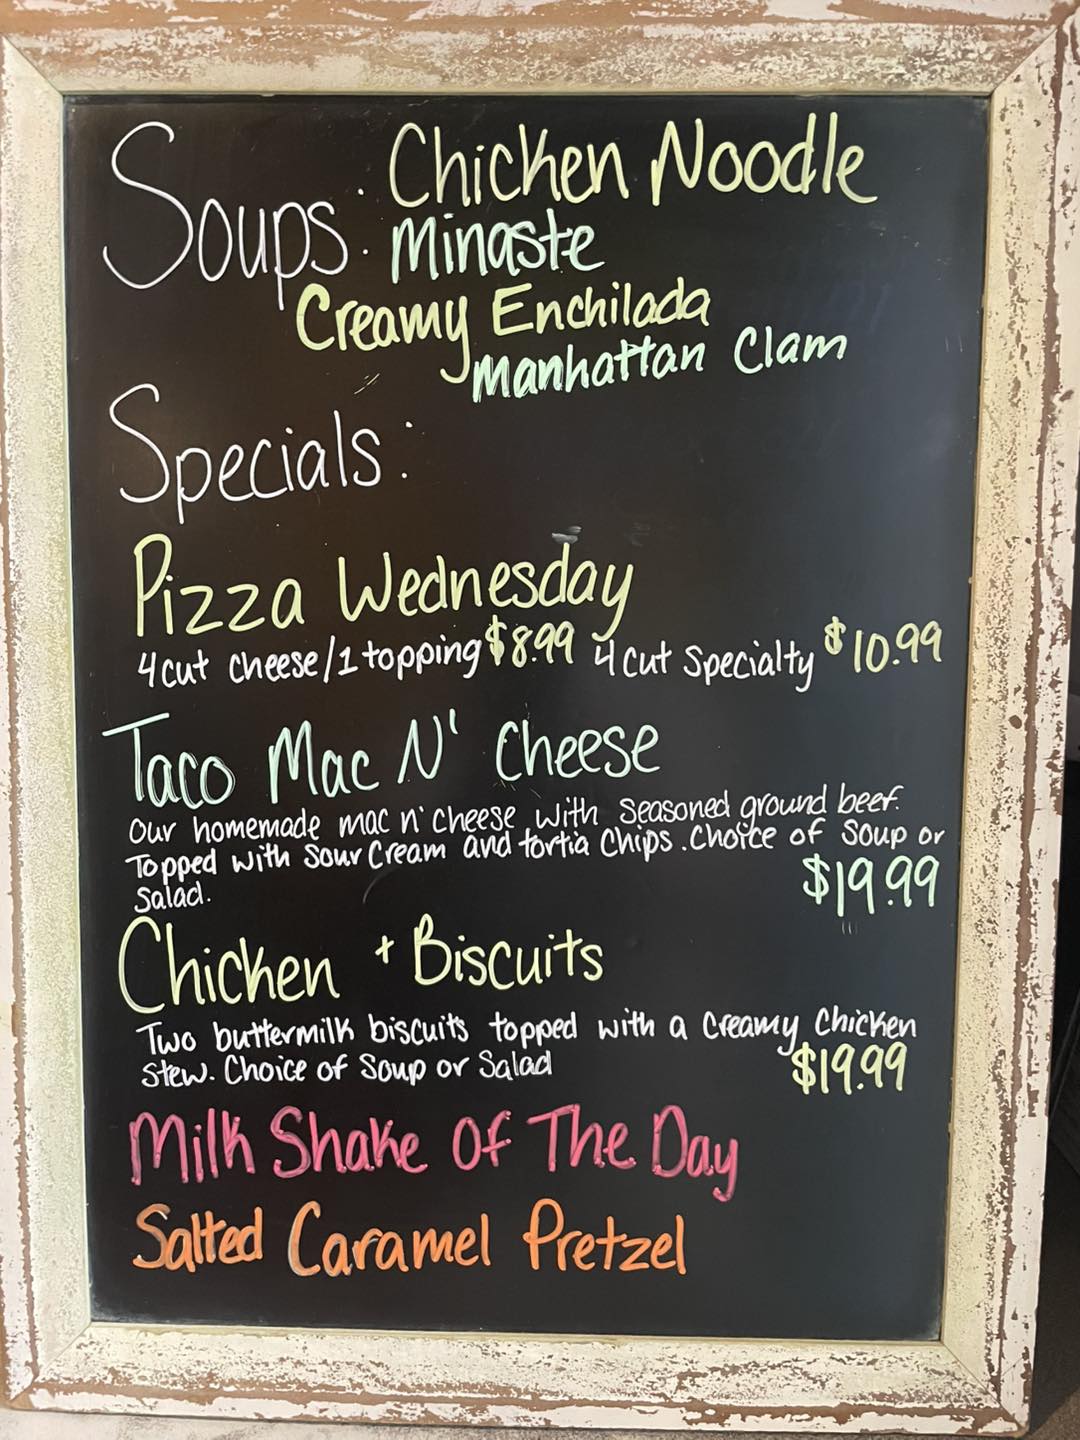 Soups: Chicken Noodle
Minaste
Creamy Enchilada
Manhattan Clam
Specials:
Pizza Wednesday
4 cut cheese/1 topping $8.99 4 cut Specialty $10.99
Taco Mac N' Cheese
Our homemade mac n' cheese with seasoned ground beef.
Topped with Sour Cream and tortia Chips. Choice of Soup or
Salad. $19.99
Chicken + Biscuits
Two buttermilk biscuits topped with a Creamy Chicken
Stew. Choice of Soup or Salad $19.99
Milk Shake Of The Day
Salted Caramel Pretzel